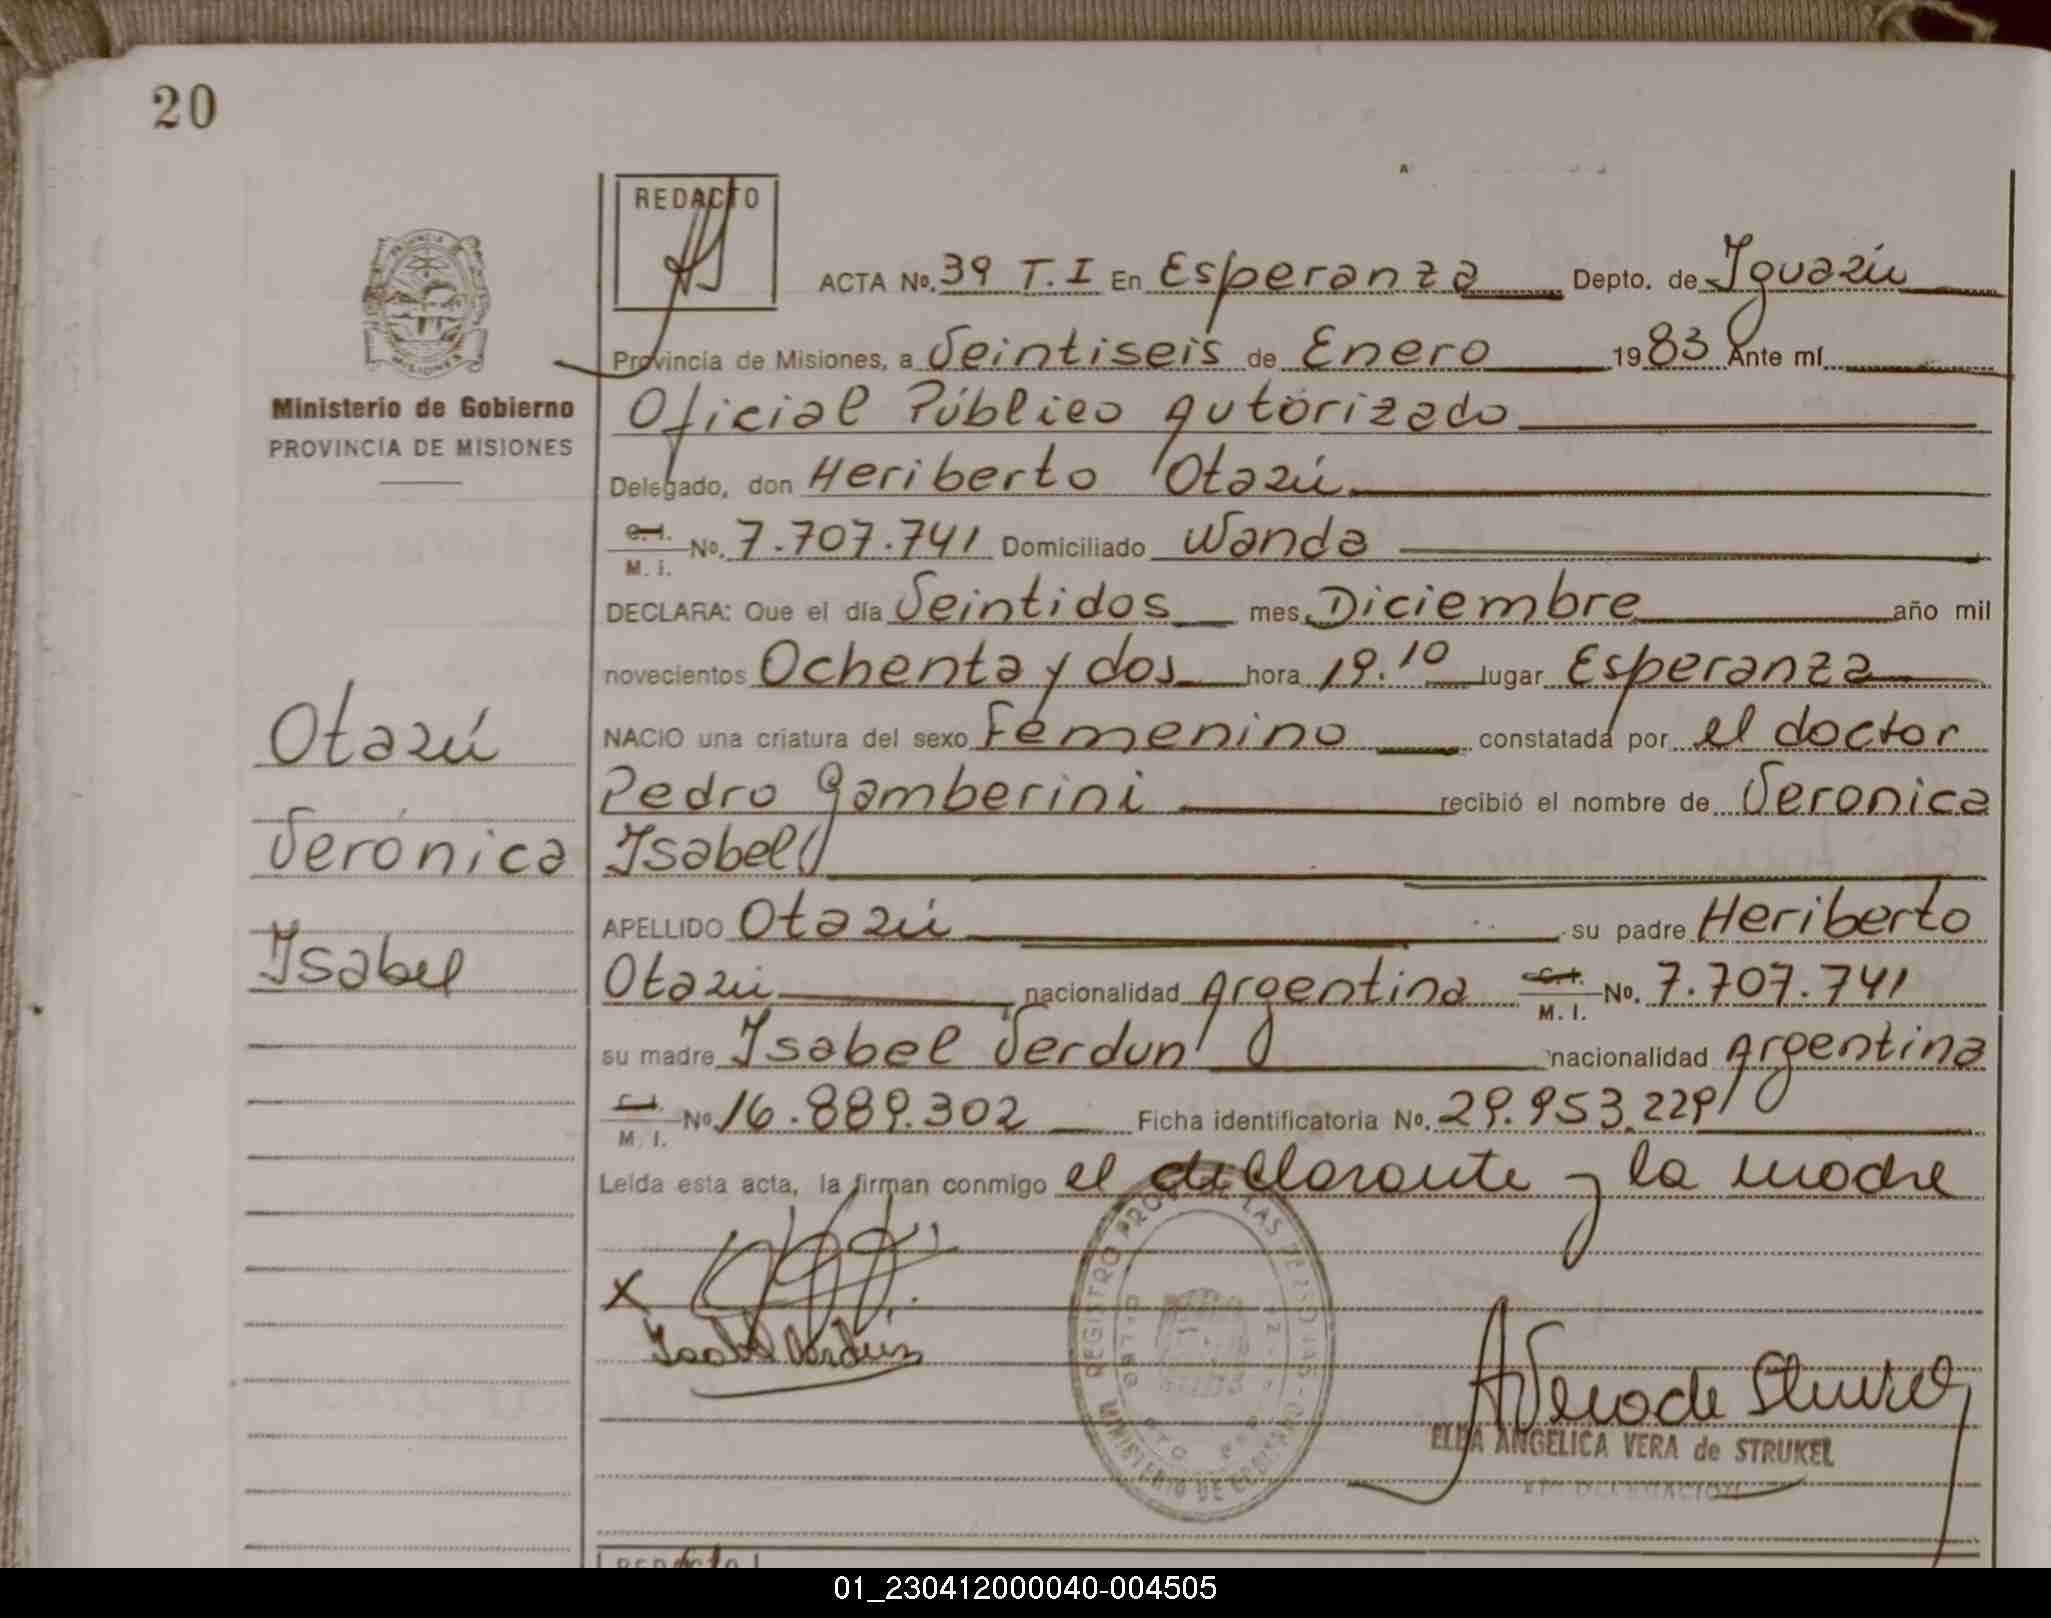 20
REDACTO
ACTA No. 39 T.I En Esperanza Depto. de Iguazú
Provincia de Misiones, a Veintiseis de Enero 1983 Ante mí
Oficial Público Autorizado
Ministerio de Gobierno
PROVINCIA DE MISIONES
Delegado, don Heriberto Otazú
C.I. M. I. No. 7.707.741 Domiciliado Wanda
DECLARA: Que el día Veintidos mes Diciembre año mil
novecientos Ochenta y dos hora 19.10 lugar Esperanza
Otazú
NACIO una criatura del sexo Femenino constatada por el doctor
Pedro Gamberini recibió el nombre de Veronica
Verónica
Isabel
APELLIDO Otazú su padre Heriberto
Isabel
Otazu nacionalidad Argentina C.I. M. I. No. 7.707.741
su madre Isabel Verdun nacionalidad Argentina
C.I. M. I. No. 16.889.302 Ficha identificatoria No. 29.953.229
Leída esta acta, la firman conmigo el declarante y la madre
X
Isabel Verdún
REGISTRO PROV. DE LAS PERSONAS
MINISTERIO DE GOBIERNO
A Vera de Strukel
ELBA ANGELICA VERA de STRUKEL
REDACTO
01_230412000040-004505